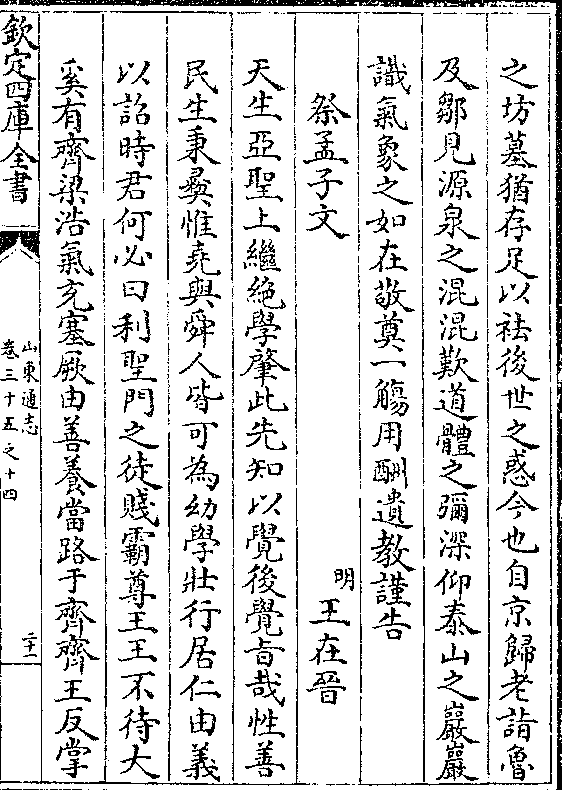 之坊墓猶存足以祛後世之惑今也自京歸老詣魯
及鄒見源泉之混混歎道體之彌深仰泰山之巖巖
識氣象之如在敬奠一觴用酬遺教謹告
祭孟子文 明 王在晉
天生亞聖上繼絶學肇此先知以覺後覺旨哉性善
民生秉彞惟堯與舜人皆可為幼學壯行居仁由義
以詔時君何必曰利聖門之徒賤霸尊王王不待大
奚有齊梁浩氣充塞厥由善養當路于齊齊王反掌
欽定四庫全書
山東通志
卷三十五之十四
二十一